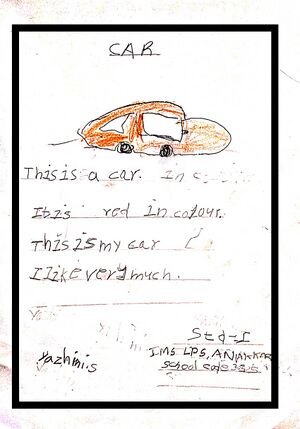 CAR
This is a car. In
It is red in colour.
This is my car
I like very much.
Std-I
IMS LPS, ANAKKAR
school code
Yazhini.s